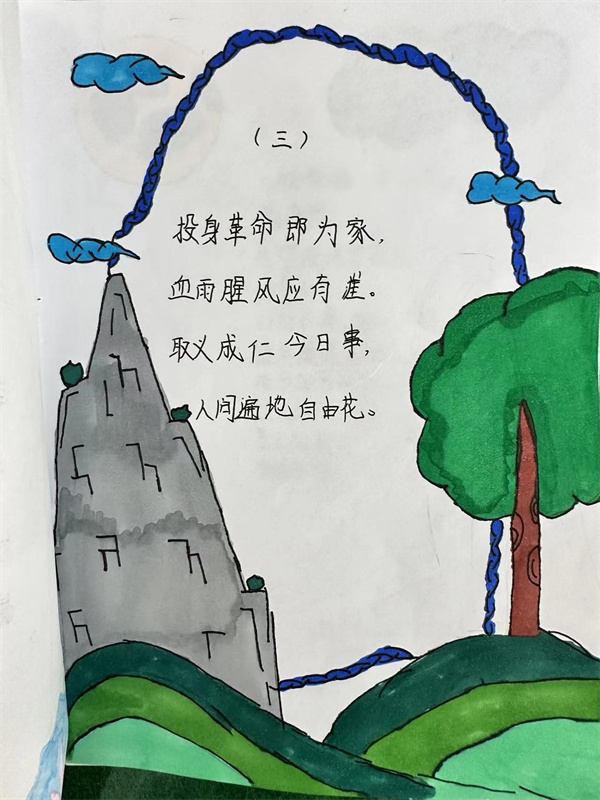 （三）
投身革命即为家，
血雨腥风应有涯。
取义成仁今日事，
人间遍地自由花。